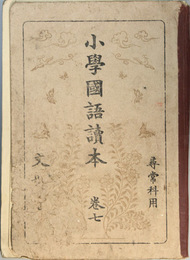 尋常科用
小學國語讀本
卷七
文